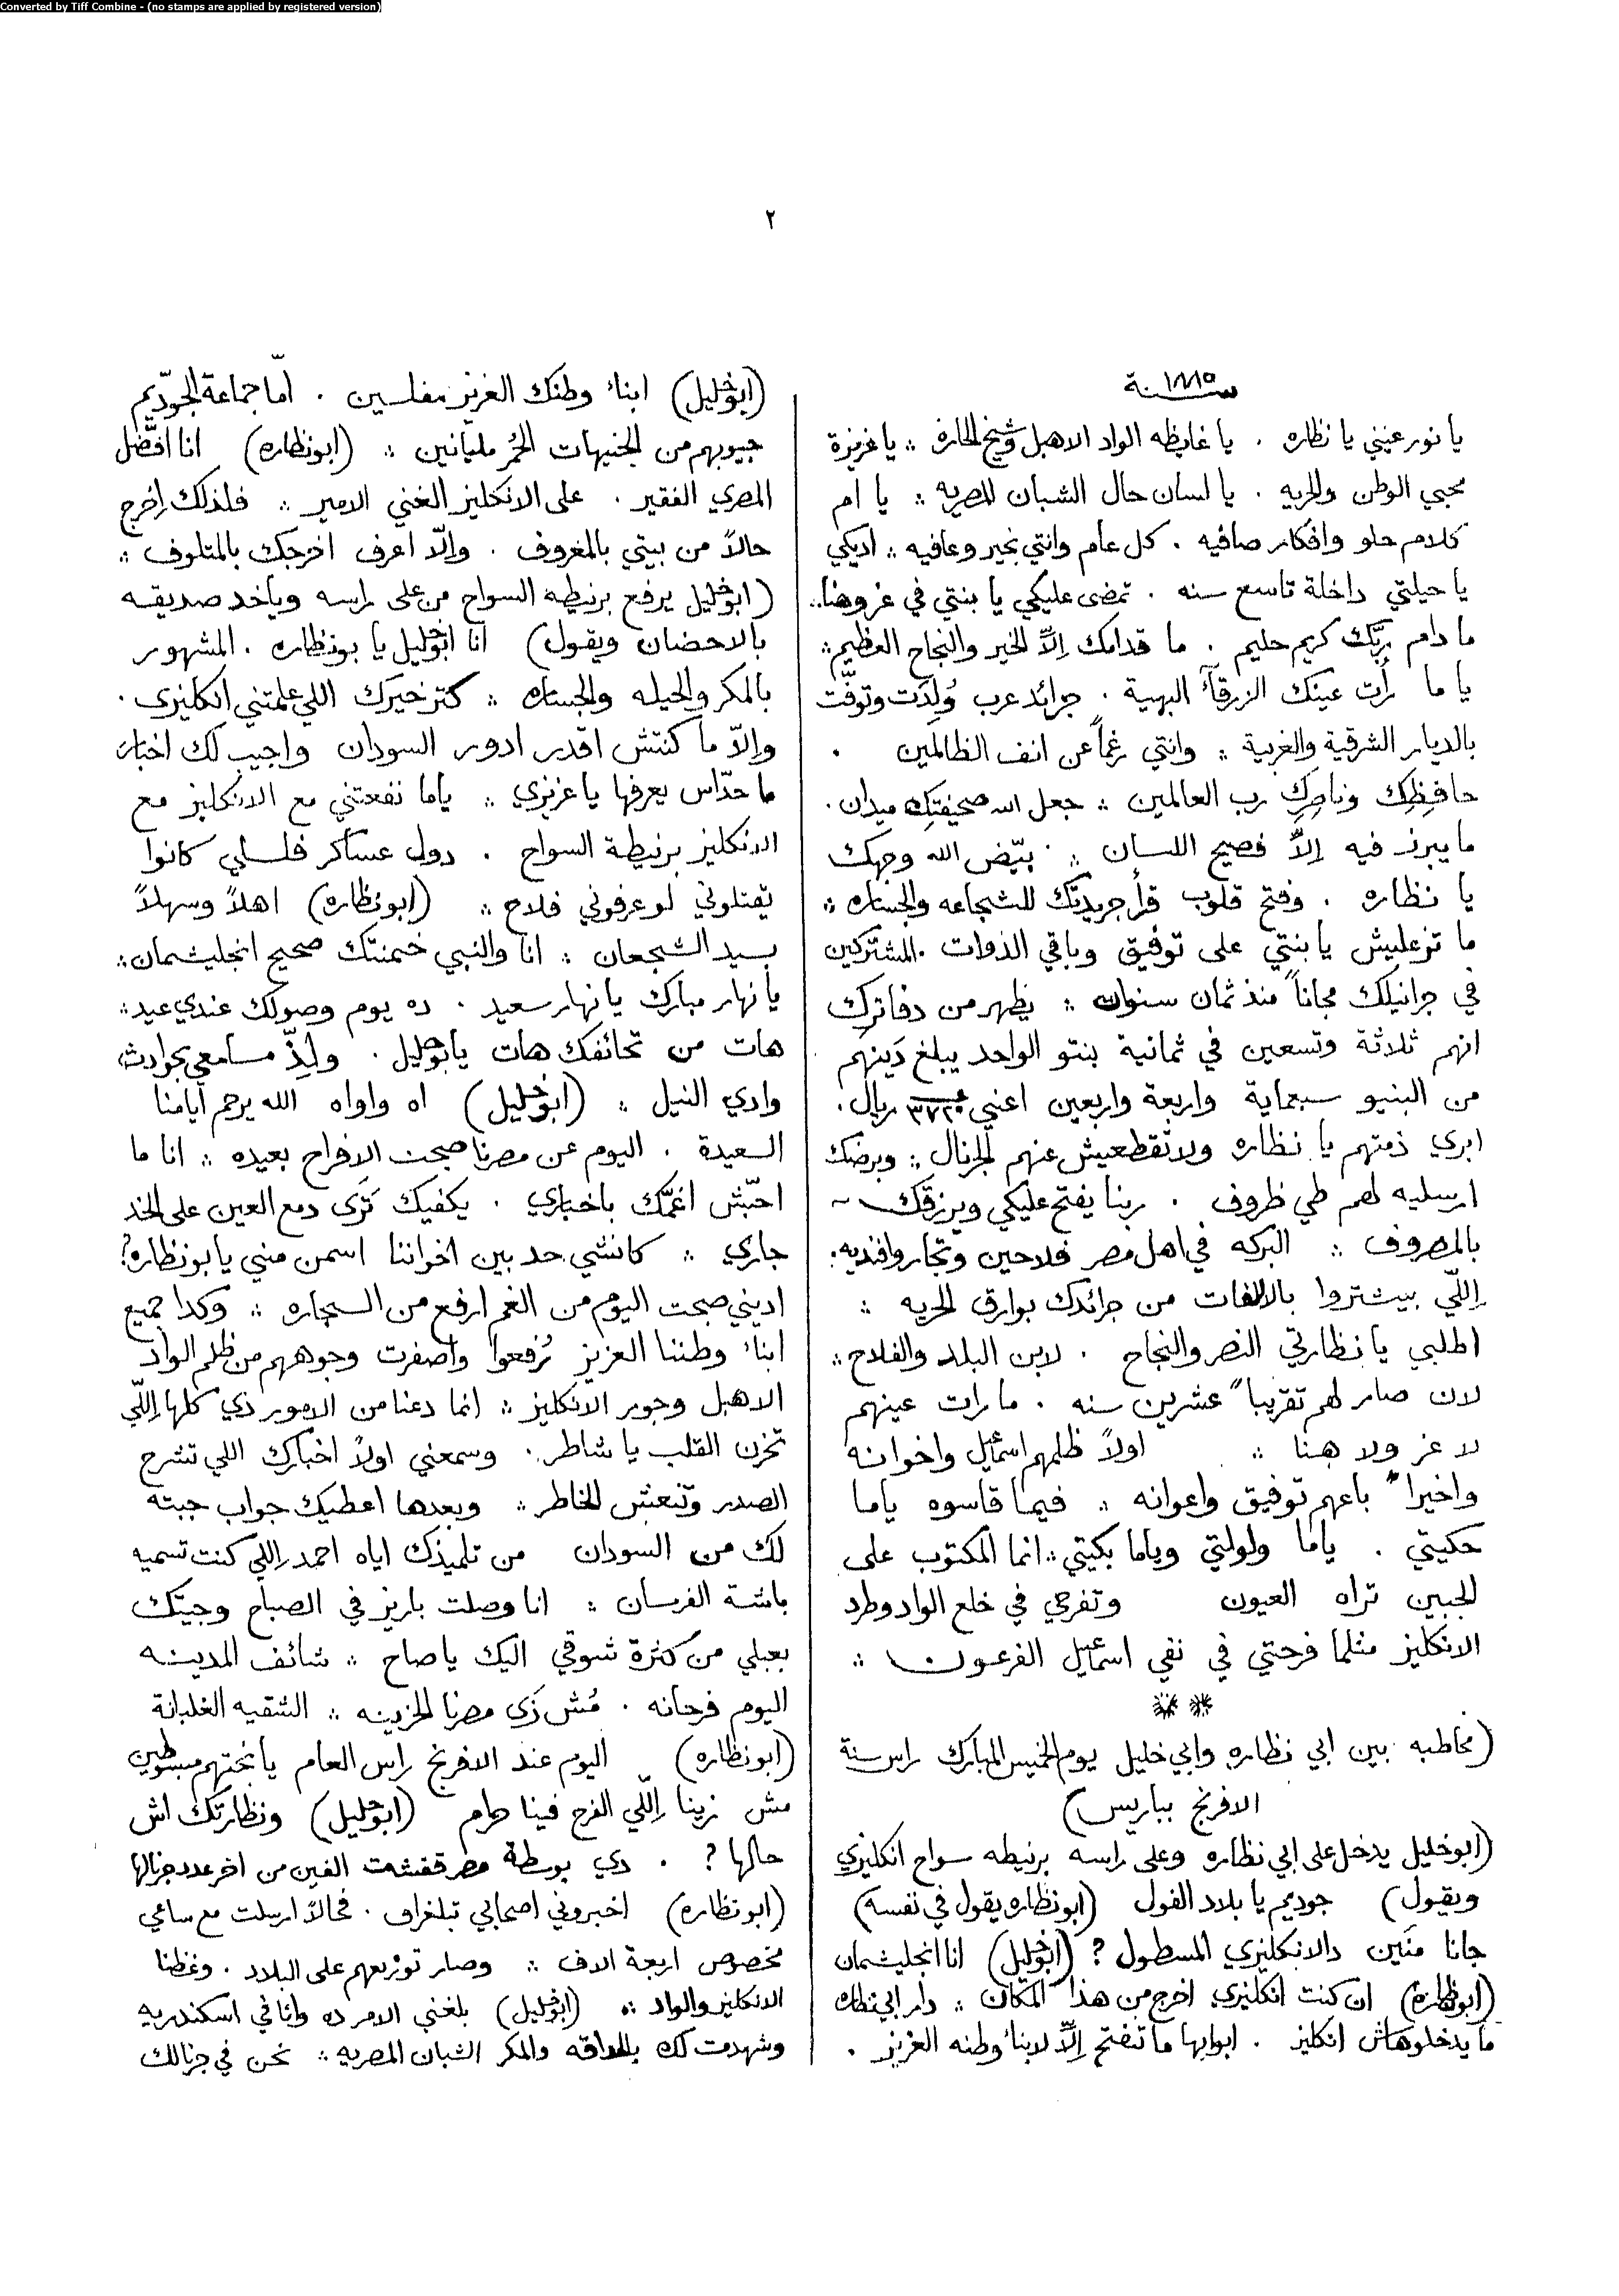 Converted by Tiff Combine - (no stamps are applied by registered version)
٢
سنة ١٨٨٥
يا نور عيني يا نظاره . يا غايظه الواد الاهبل وشيخ الحاره ؞ يا عزيزة
محبي الوطن والحريه . يا لسان حال الشبان المصريه ؞ يا ام
كلام حلو وافكار صافيه . كل عام وانتي بخير وعافيه ؞ اديكي
يا حيلتي داخلة تاسع سنه . تمضى عليكي يا بنتي في عز وهنا ؞
ما دام ربّك كريم حليم . ما قدامك الاّ الخير والنجاح العظيم ؞
يا ما رأت عينك الزرقآء البهية . جرائد عرب وُلِدَت وتوفّت
بالديار الشرقية والغربية ؞ وانتي رغماً عن انف الظالمين .
حافِظِك وناصِرِك رب العالمين ؞ جعل الله صحيفتِك ميدان .
ما يبرز فيه اِلاّ فصيح اللسان ؞ بيّض الله وجهك
يا نظاره . وفتح قلوب قرأ جريدتك للشجاعه والجساره ؞
ما تزعليش يا بنتي على توفيق وباقي الذوات . المشتركين
في جرانيلك مجاناً منذ ثمان سنوات ؞ يظهر من دفاترك
انهم ثلاثة وتسعين في ثمانية بنتو الواحد يبلغ دَينهم
من البنيو سبعماية واربعة واربعين اعني ٣٧٢٠ ريال .
ابري ذمتهم يا نظاره ولا تقطعيش عنهم الجرنال ؞ وبرضك
ارسليه لهم طي ظروف . ربنا يفتح عليكي ويرزقك
بالمصروف ؞ البركه في اهل مصر فلاحين وتجار وافنديه .
اِللّي بيشتروا بالالفات من جرائدك بوارق الحريه ؞
اطلبي يا نظارتي النصر والنجاح . لابن البلد والفلاح ؞
لان صار لهم تقريباً عشرين سنه . ما رات عينهم
لا عز ولا هنا ؞ اولاً ظلمهم اسمعيل واخوانه
واخيراً باعهم توفيق واعوانه ؞ فيما قاسوه ياما
حكيتي . ياما ولولتي وياما بكيتي ؞ انما المكتوب على
الجبين تراه العيون وتفرحي في خلع الواد وطرد
الانكليز مثلما فرحتي في نفي اسمعيل الفرعون ؞
** 
(مخاطبه بين ابي نظاره وابي خليل يوم الخميس المبارك راس سنة
الافرنج بباريس)
(ابو خليل يدخل على ابي نظاره وعلى راسه برنيطه سواح انكليزي
ويقول) جوديم يا بلاد الفول (ابو نظاره يقول في نفسه)
جانا منَين دالانكليزي المسطول ? (ابو خليل) انا انجليشمان
(ابو نظاره) ان كنت انكليزي اخرج من هذا المكان ؞ دار ابي نظاره
ما يدخلوهاش انكليز . ابوابها ما تنفتح اِلاّ لابناء وطنه العزيز .
(ابو خليل) ابناء وطنك العزيز مفلسين . امّا جماعة الجودّيم
جيوبهم من الجنيهات الحُمر مليانين ؞ (ابو نظاره) انا افضّل
المصري الفقير . على الانكليز الغني الامير ؞ فلذلك اِخرج
حالاً من بيتي بالمعروف . واِلاّ اعرف اخرجك بالمتلوف ؞
(ابو خليل يرفع برنيطه السواح من على راسه وياخد صديقه
بالاحضان ويقول) انا ابو خليل يا بو نظاره . المشهور
بالمكر والحيله والجساره ؞ كتر خيرك اللي علمتني انكليزى .
واِلاّ ما كنتش اقدر ادور السودان واجيب لك اخبار
ما حدّاس يعرفها يا عزيزي ؞ ياما نفعتني مع الانكليز مع
الانكليز برنيطة السواح . دول عساكر فلسلي كانوا
يقتلوني لو عرفوني فلاح ؞ (ابو نظاره) اهلاً وسهلاً
بسيد الشجعان ؞ انا والنبي خمنتك صحيح انجليشمان ؞
يا نهار مبارك يا نهار سعيد . ده يوم وصولك عندي عيد ؞
هات من تحائفك هات يا بو خليل . ولذّ مسامعي بحوادث
وادي النيل ؞ (ابو خليل) اه واواه الله يرحم ايامنا
السعيدة . اليوم عن مصرنا صبحت الافراح بعيده ؞ انا ما
احبّش اغمّك باخباري . يكفيك تَرى دمع العين على الخد
جاري ؞ كانشي حد بين اخواننا اسمن مني يا بو نظاره ?
اديني صبحت اليوم من الغم ارفع من السجاره ؞ وكدا جميع
ابناء وطننا العزيز رُفعوا واصفرت وجوههم من ظلم الواد
الاهبل وجور الانكليز ؞ انما دعنا من الامور دي كلها اِللّي
تحزن القلب يا شاطر . وسمعني اولاً اخبارك اللي تشرح
الصدر وتنعش الخاطر ؞ وبعدها اعطيك جواب جبته
لك من السودان من تلميذك اياه احمد اِللي كنت تسميه
باشة الفرسان ؞ انا وصلت باريز في الصباح وجيتك
بعبلي من كثرة شوقي اليك يا صاح ؞ شائف المدينه
اليوم فرحانه . مُش زَي مصرنا الحزينه ؞ الشقيه الغلبانة
(ابو نظاره) اليوم عند الافرنج راس العام يا بختهم مبسوطين
مش زينا اِللّي الفرح فينا حرام (ابو خليل) ونظارتك اش
حالها ? . دي بوسطة مصر قفشت الفين من اخر عدد جرنالها
(ابو نظاره) اخبروني اصحابي تبلغراف . فحالاً ارسلت مع ساعي
مخصوص اربعة الاف ؞ وصار توزيعهم على البلاد . وغظنا
الانكليز والواد ؞ (ابو خليل) بلغني الامر ده وانا في اسكندريه
وشهدت لك بالحداقه والمكر الشبان المصريه ؞ نحن في جرنالك